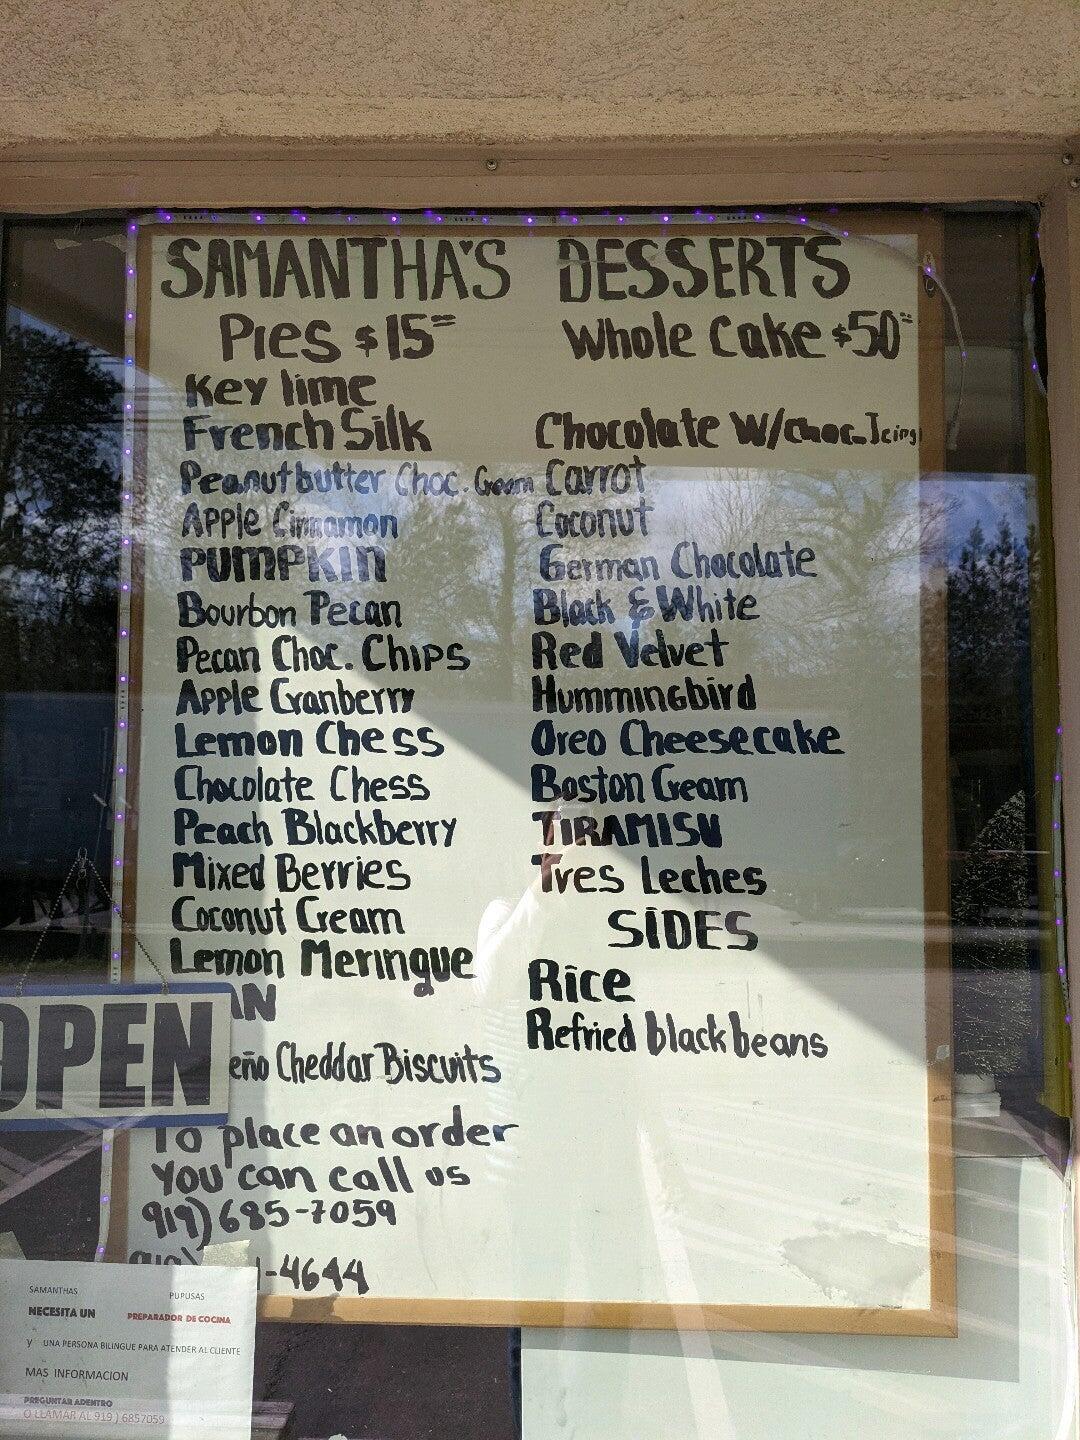 SAMANTHA'S DESSERTS
Pies $15=
Key lime
French Silk
Peanutbutter Choc. Cream
Apple Cinnamon
PUMPKIN
Bourbon Pecan
Pecan Choc. Chips
Apple Cranberry
Lemon Chess
Chocolate Chess
Peach Blackberry
Mixed Berries
Coconut Cream
Lemon Meringue
AN
eño Cheddar Biscuits
To place an order
you can call us
919) 685-7059
-4644
Whole Cake $50=
Chocolate W/choc. Icing
Carrot
Coconut
German Chocolate
Black & White
Red Velvet
Hummingbird
Oreo Cheesecake
Boston Cream
TIRAMISU
Tres Leches
SIDES
Rice
Refried black beans
OPEN
SAMANTHAS PUPUSAS
NECESITA UN PREPARADOR DE COCINA
y UNA PERSONA BILINGUE PARA ATENDER AL CLIENTE
MAS INFORMACION
PREGUNTAR ADENTRO
O LLAMAR AL 919 ) 6857059